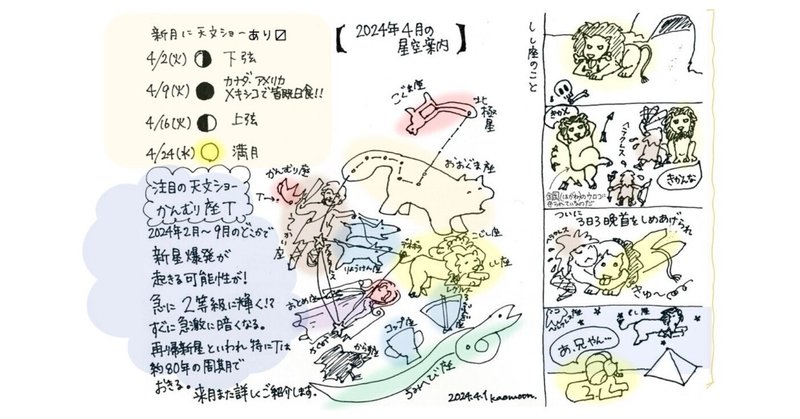 新月に天文ショーあり☑
4/2(火) 下弦
4/9(火) カナダ、アメリカ
メキシコで皆既日食!!
4/16(火) 上弦
4/24(水) 満月
【2024年4月の
星空案内】
注目の天文ショー
かんむり座T
2024年2月〜9月のどこかで
新星爆発が
起きる可能性が!
急に2等級に輝く!?
すぐに急激に暗くなる。
再帰新星といわれ特にTは
約80年の周期で
おきる。
来月また詳しくご紹介します。
こぐま座
北極星
おおぐま座
かんむり座
T→
りょうけん座
こじし座
しし座
デネボラ
レグルス
おとめ座
コップ座
からす座
うみへび座
2024.4.1 kaomoon.
しし座のこと
きかん
ヘラクレス
きかんな
ついに
3日3晩首をしめあげられ
きゅ〜
しし座
あ、兄やん…